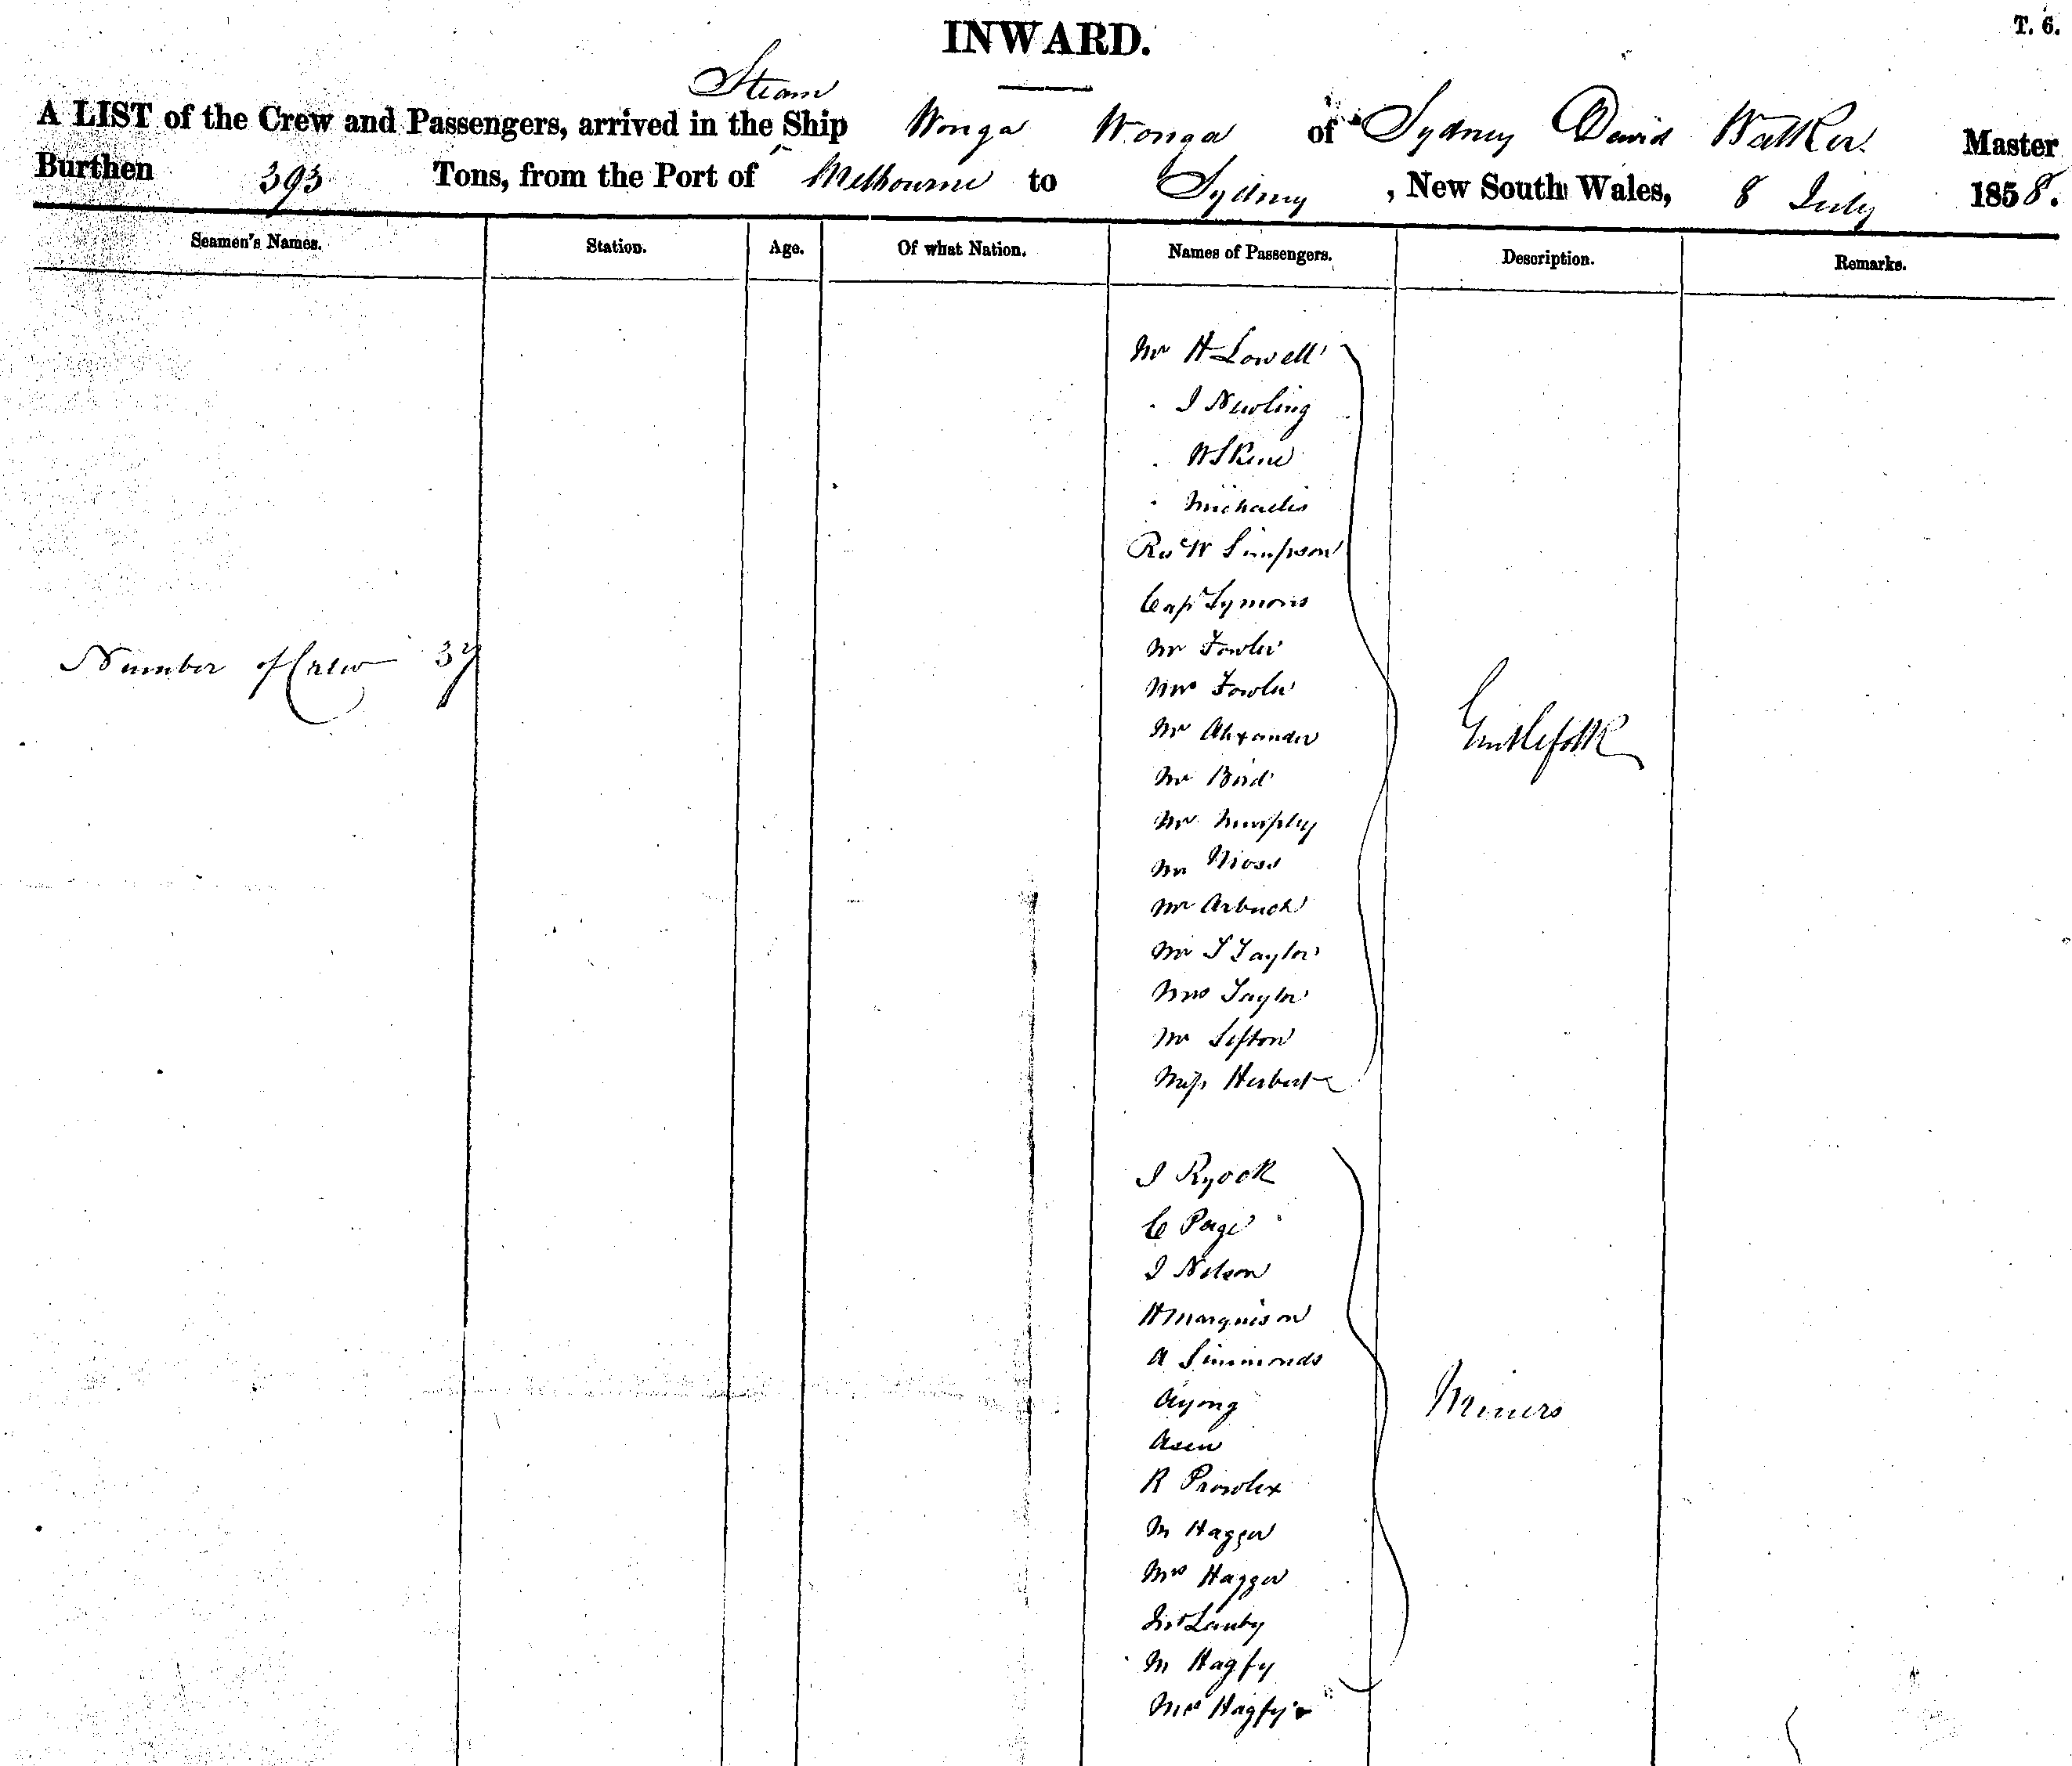 INWARD.
T. 6.
Steam
A LIST of the Crew and Passengers, arrived in the Ship Wonga Wonga of Sydney David Walker Master
Burthen 393 Tons, from the Port of Melbourne to Sydney, New South Wales, 8 July 1858.
Seamen's Names. Station. Age. Of what Nation. Names of Passengers. Description. Remarks.
Mr H Lowell
" J Newling
" W Skene
" Michaelis
Revd W Simpson
Capt Symons
Mr Fowler
Number of Crew 37
Mrs Fowler
Mr Alexander
Gentlefolk
Mr Bird
Mr Murphy
Mr Moss
Mr
Mr T Taylor
Mrs Taylor
Mr Sefton
Miss Herbert
J Ryock
C Page
J Nelson
H Marquison
A Simmonds
Ayong
Miners
Asew
R
M Hagger
Mrs Hagger
M Hagfy
Mrs Hagfy